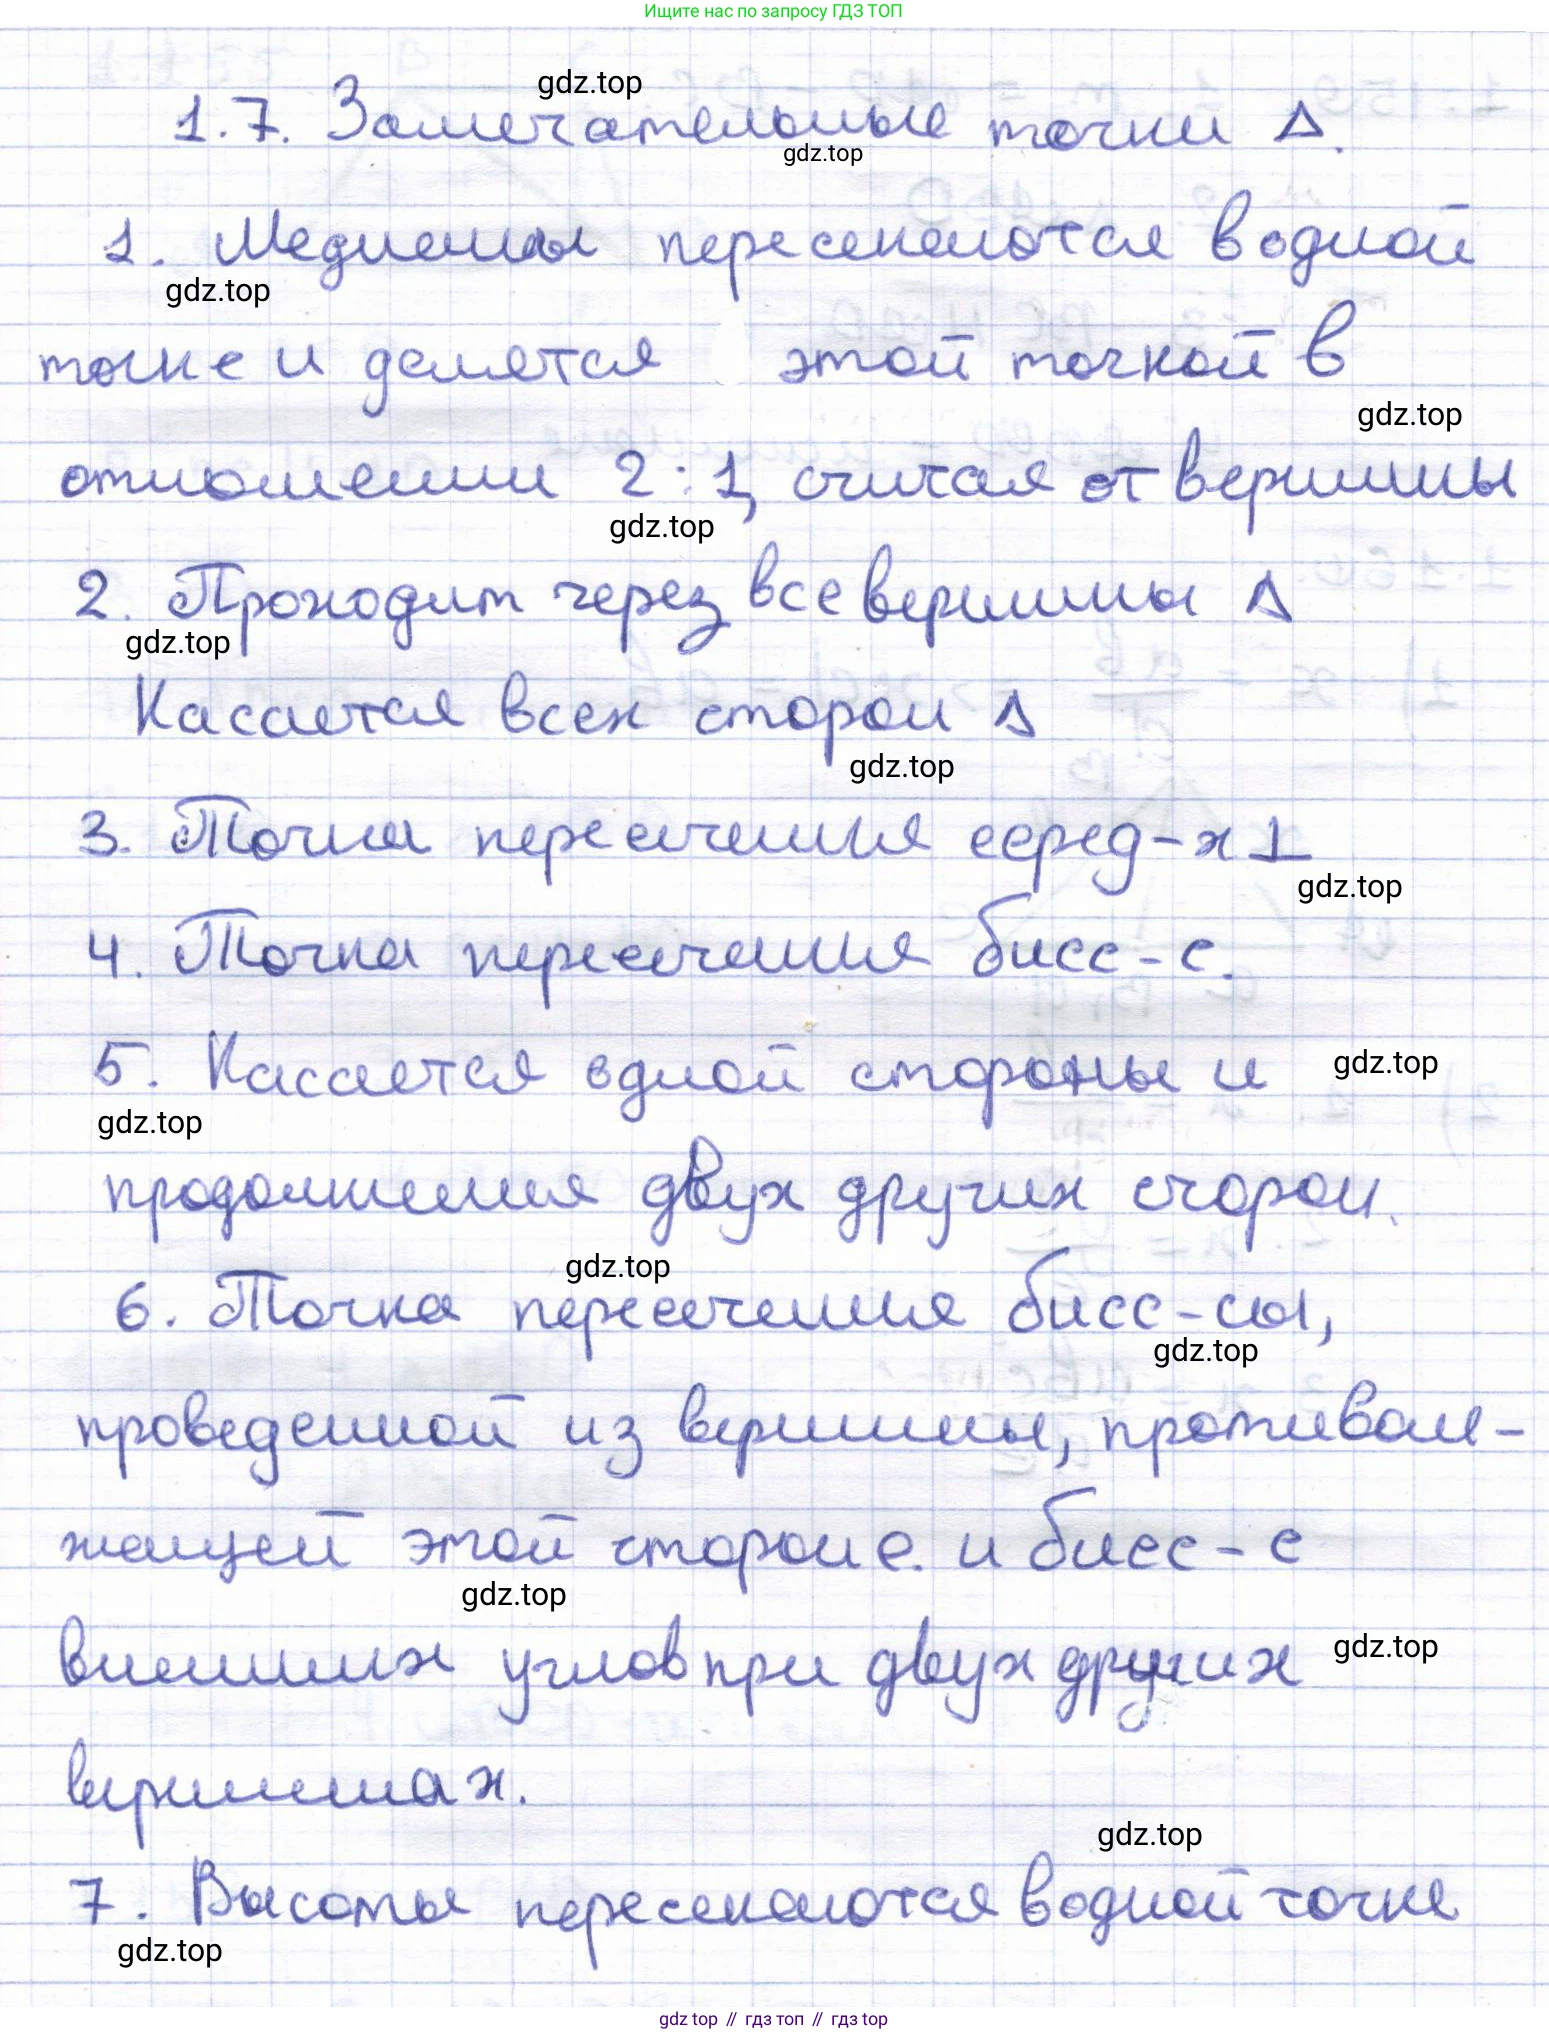 Ищите нас по запросу ГДЗ ТОП
gdz.top
1.7. Замечательные точки Δ.
gdz.top
1. Медианы пересекаются в одной
gdz.top
точке и делятся этой точкой в
gdz.top
отношении 2:1, считая от вершины
gdz.top
2. Проходит через все вершины Δ
gdz.top
Касается всех сторон Δ
gdz.top
3. Точка пересечения серед-х ⊥
gdz.top
4. Точка пересечения бисс-с.
5. Касается одной стороны и
gdz.top
gdz.top
продолжения двух других сторон.
gdz.top
6. Точка пересечения бисс-сы,
gdz.top
проведенной из вершины, противоле-
жащей этой стороне. и бисс-с
gdz.top
внешних углов при двух других
gdz.top
вершинах.
gdz.top
7. Высоты пересекаются в одной точке
gdz.top
gdz top // гдз топ // гдз top